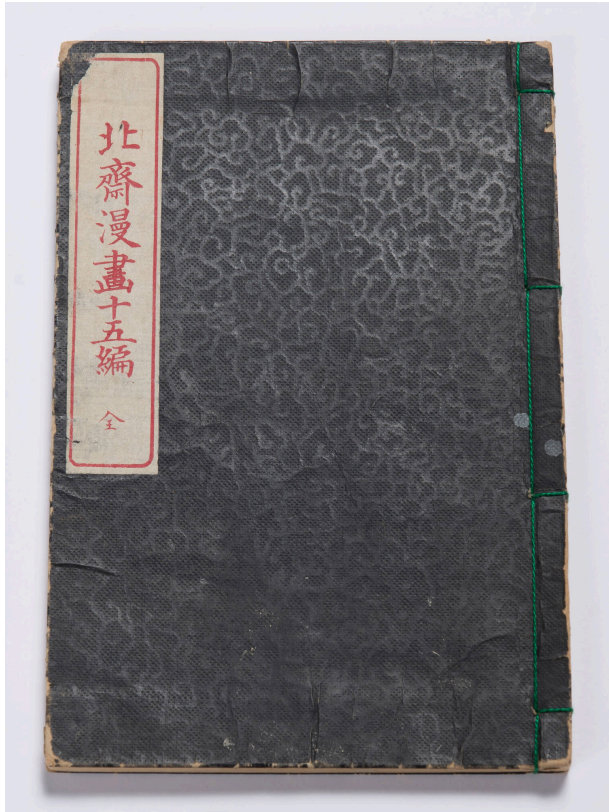 北齋漫畫十五編
全